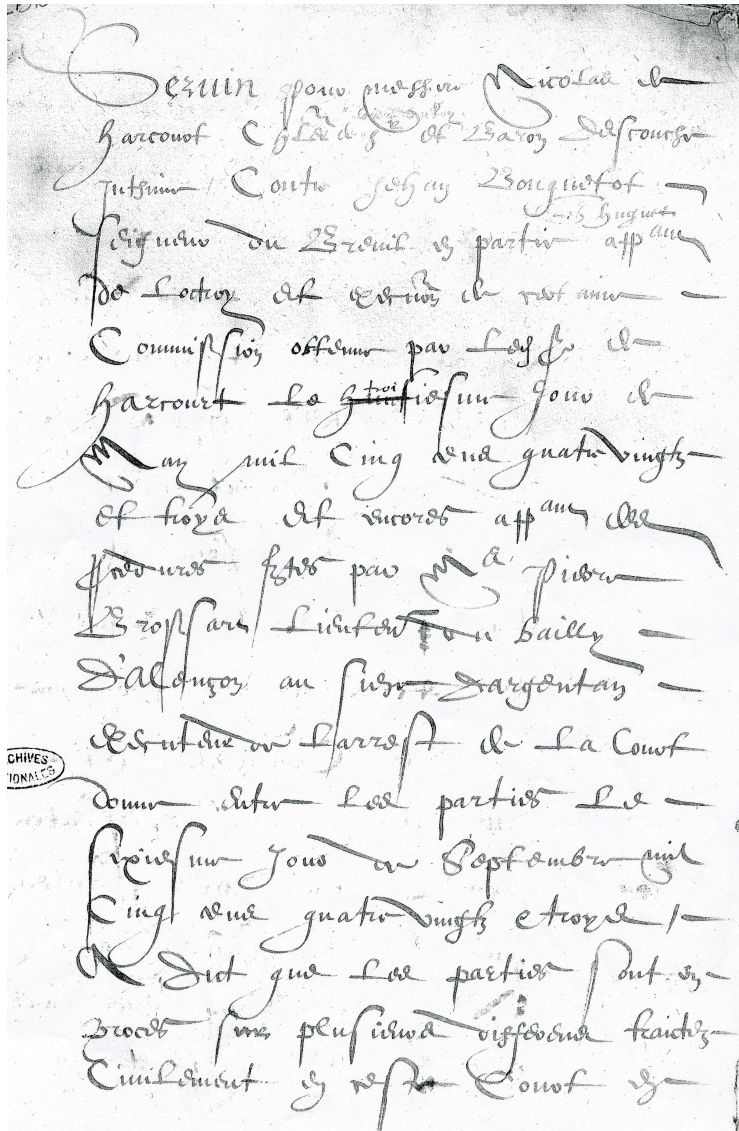 Servin pour messire Nicolas de
Harcourt Chler de et Baron descouche
Inthime Contre Jehan Bouquetot
Seigneur du Breuil en partie appant
de Loctroy et execuon de certaine
Commission obtenue par Led Sr de
Harcourt Le troisiesme Jour de
May mil Cinq cens quatre vingtz
et troys et encores appant des
procedures fetes par Me Pierre
Brossart Lieuten du bailly
D'Alençon au siege dargentan
executeur de Larrest de La Court
donne entre Les parties Le
sixiesme Jour de Septembre mil
Cinq cens quatre vingtz et troys /
A Dict que Les parties sont en
proces sur plusieurs differens traictez
Civilement en ceste Court en
CHIVES
IONALES